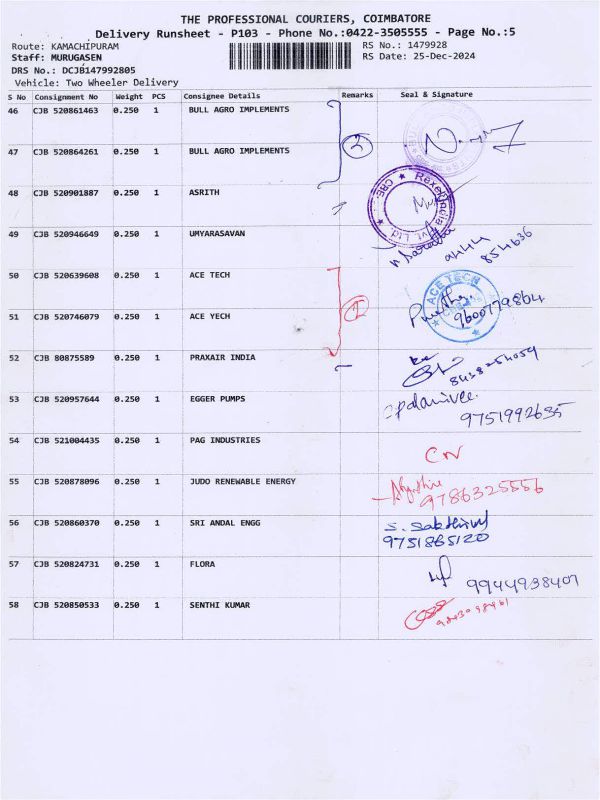 THE PROFESSIONAL COURIERS, COIMBATORE
Delivery Runsheet - P103 - Phone No.:0422-3505555 - Page No.:5
Route: KAMACHIPURAM RS No.: 1479928
Staff: MURUGASEN RS Date: 25-Dec-2024
DRS No.: DCJB147992805
Vehicle: Two Wheeler Delivery
S No Consignment No Weight PCS Consignee Details Remarks Seal & Signature
46 CJB 520861463 0.250 1 BULL AGRO IMPLEMENTS
2
47 CJB 520864261 0.250 1 BULL AGRO IMPLEMENTS
48 CJB 520901887 0.250 1 ASRITH
49 CJB 520946649 0.250 1 UMYARASAVAN
854636
50 CJB 520639608 0.250 1 ACE TECH
ACE TECH
51 CJB 520746079 0.250 1 ACE YECH
9600779864
52 CJB 80875589 0.250 1 PRAXAIR INDIA
53 CJB 520957644 0.250 1 EGGER PUMPS
9751992635
54 CJB 521004435 0.250 1 PAG INDUSTRIES
CN
55 CJB 520878096 0.250 1 JUDO RENEWABLE ENERGY
9786325556
56 CJB 520860370 0.250 1 SRI ANDAL ENGG
S. Sakthivel
9751865120
57 CJB 520824731 0.250 1 FLORA
9944938401
58 CJB 520850533 0.250 1 SENTHI KUMAR